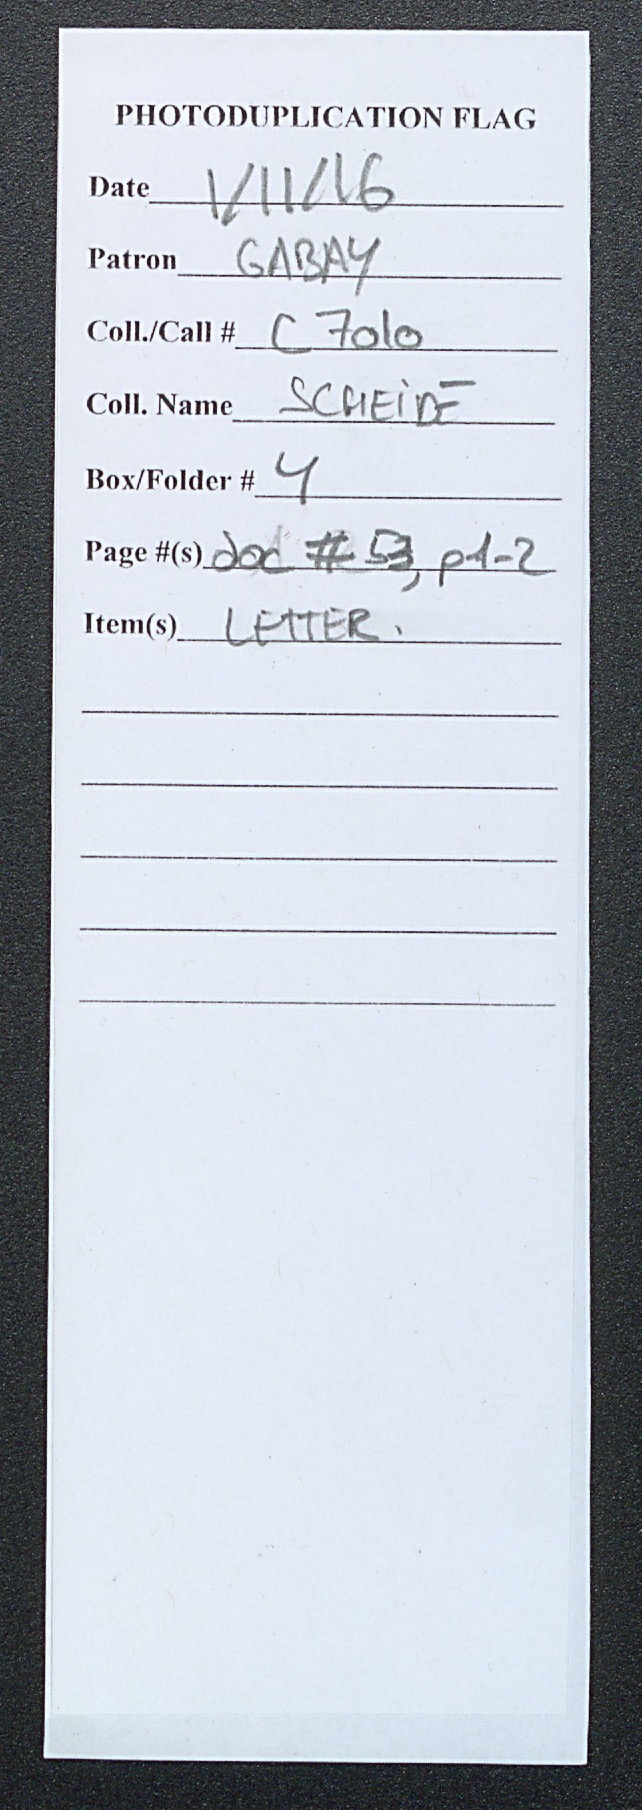 PHOTODUPLICATION FLAG
Date 1/11/16
Patron GABAY
Coll./Call # C 7010
Coll. Name SCHEIDE
Box/Folder # 4
Page #(s) doc # 53, p1-2
Item(s) LETTER.